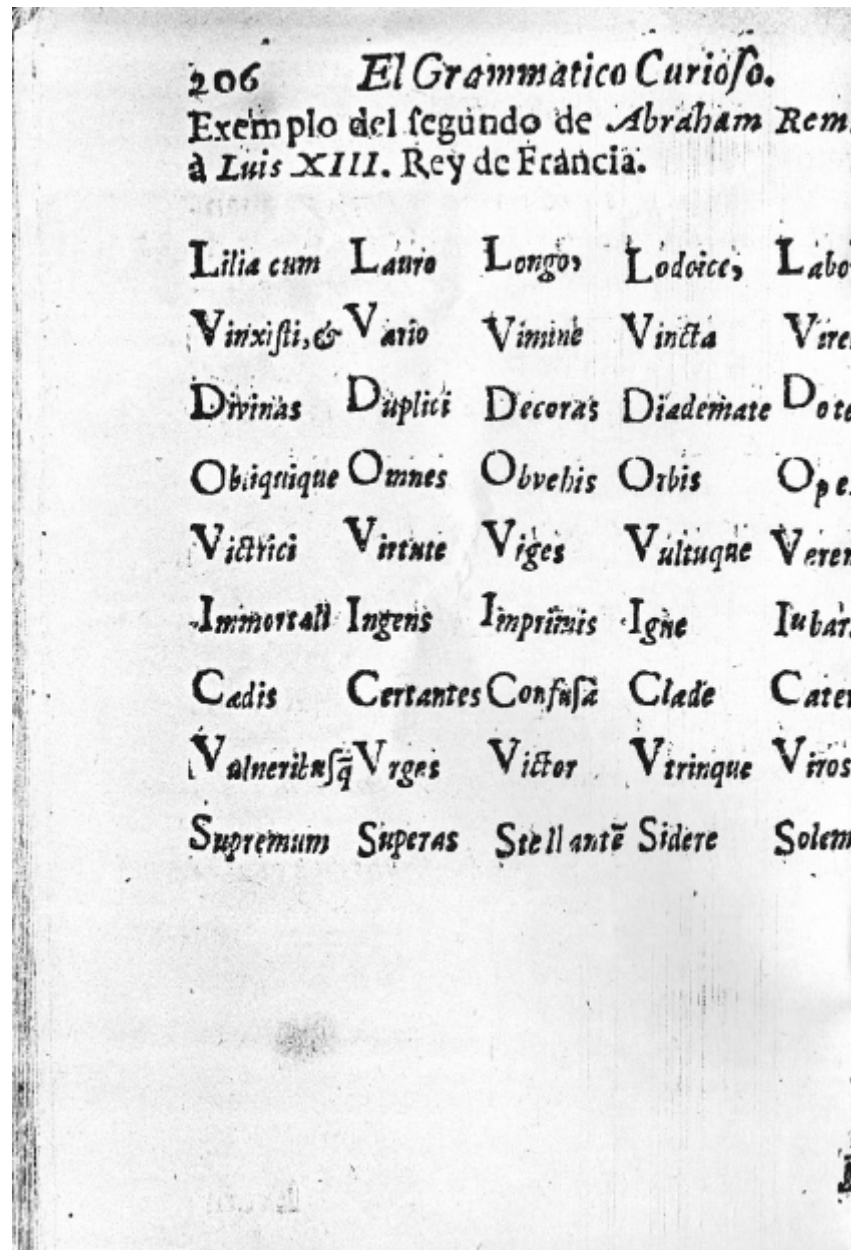 206 El Grammatico Curioſo.
Exemplo del ſegundo de Abraham Rem
à Luis XIII. Rey de Francia.
Lilia cum Lauro Longo, Lodoice, Labo
Vinxiſti, & Vario Vimine Vincta Vire
Divinas Duplici Decoras Diademate Dote
Obliquique Omnes Obvehis Orbis Ope
Victrici Virtute Viges Vultuque Veren
Immortali Ingens Imprimis Igne Iubar
Cædis Certantes Confuſã Clade Cater
Vulneribuſq̃ Vrges Victor Vtrinque Viros
Supremum Superas Stellantẽ Sidere Solem